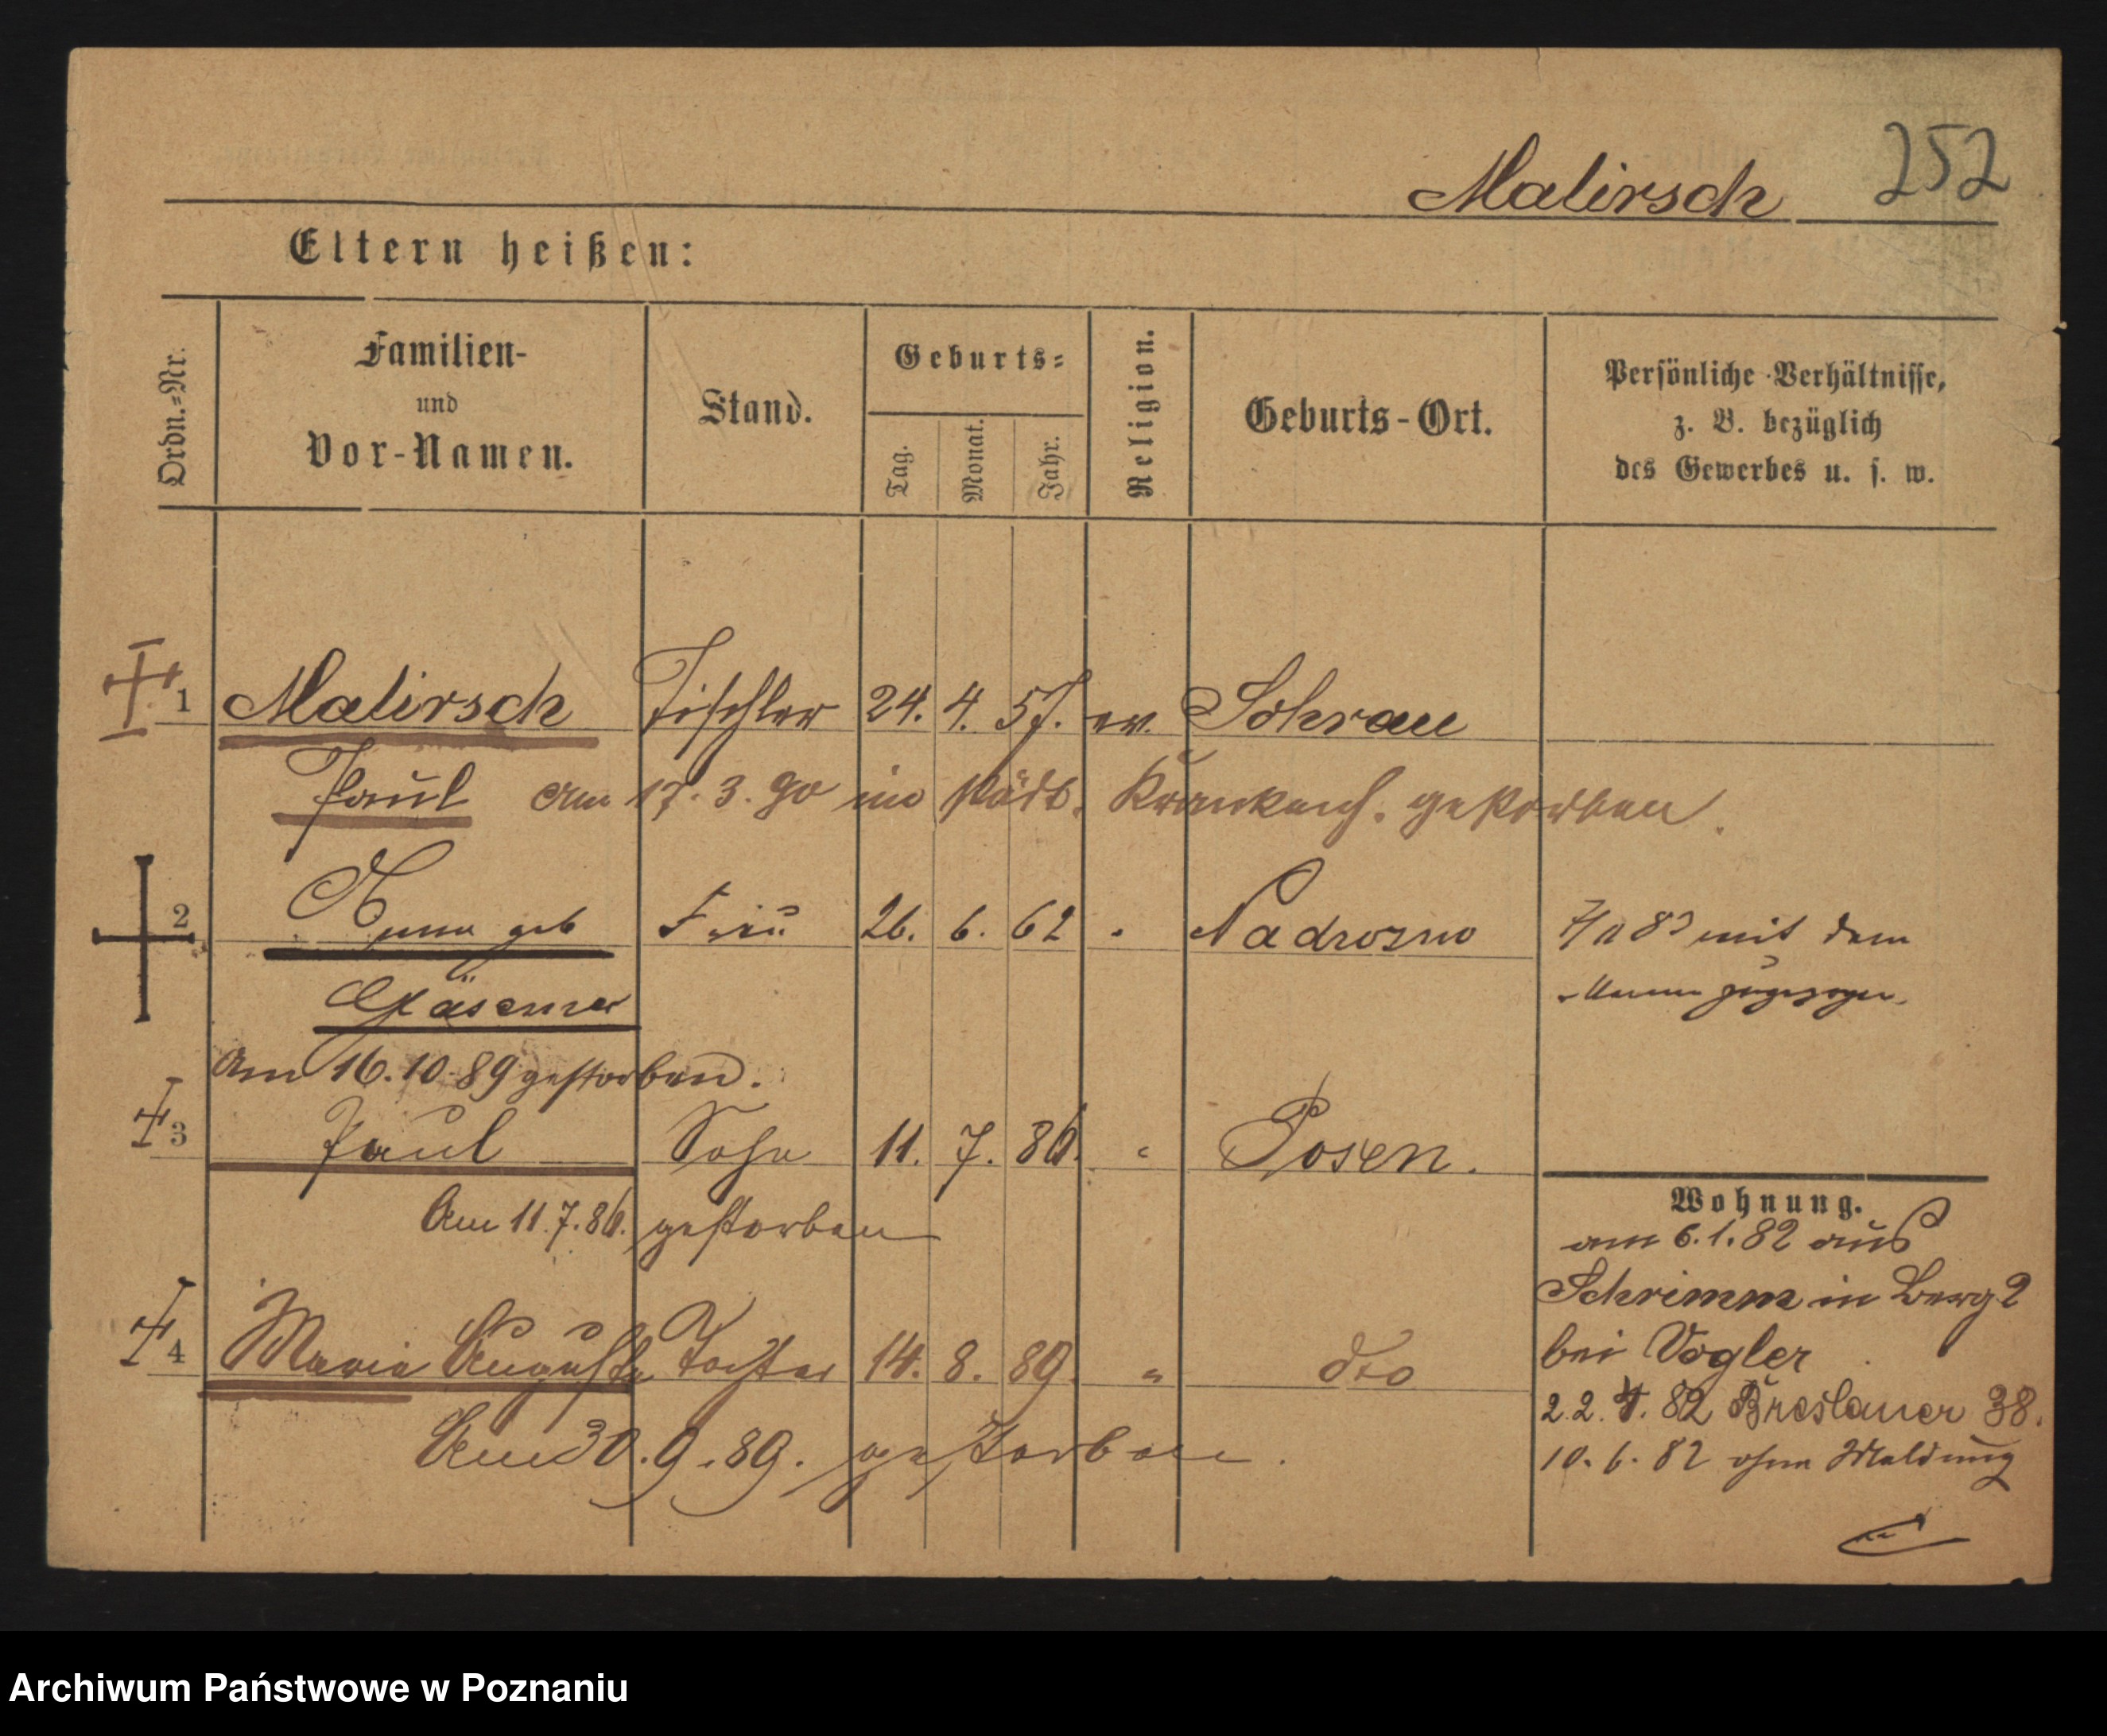 252
Malirsch
Eltern heißen:
Ordn.=Nr.
Familien-
und
Vor-Namen.
Stand.
Geburts=
Tag.
Monat.
Jahr.
Religion.
Geburts-Ort.
Persönliche Verhältnisse,
z. B. bezüglich
des Gewerbes u. s. w.
1 Malirsch Tischler 24. 4. 57. ev. Sohrau
Paul am 17. 3. 90 im städt. Krankenh. gestorben.
2 Anna geb Frau 26. 6. 62 " Nadrozno
mit dem
Manne zugezogen.
Gläsemer
Am 16.10.89 gestorben.
3 Paul Sohn 11. 7. 86. " Posen.
Am 11.7.86. gestorben
4 Maria Auguste Tochter 14. 8. 89. " dto
Am 30.9.89. gestorben.
Wohnung.
am 6.1.82 aus
Schrimm in Berg 2
bei Vogler
2.2. 82 Breslauer 38.
10.6.82 ohne Meldung
Archiwum Państwowe w Poznaniu